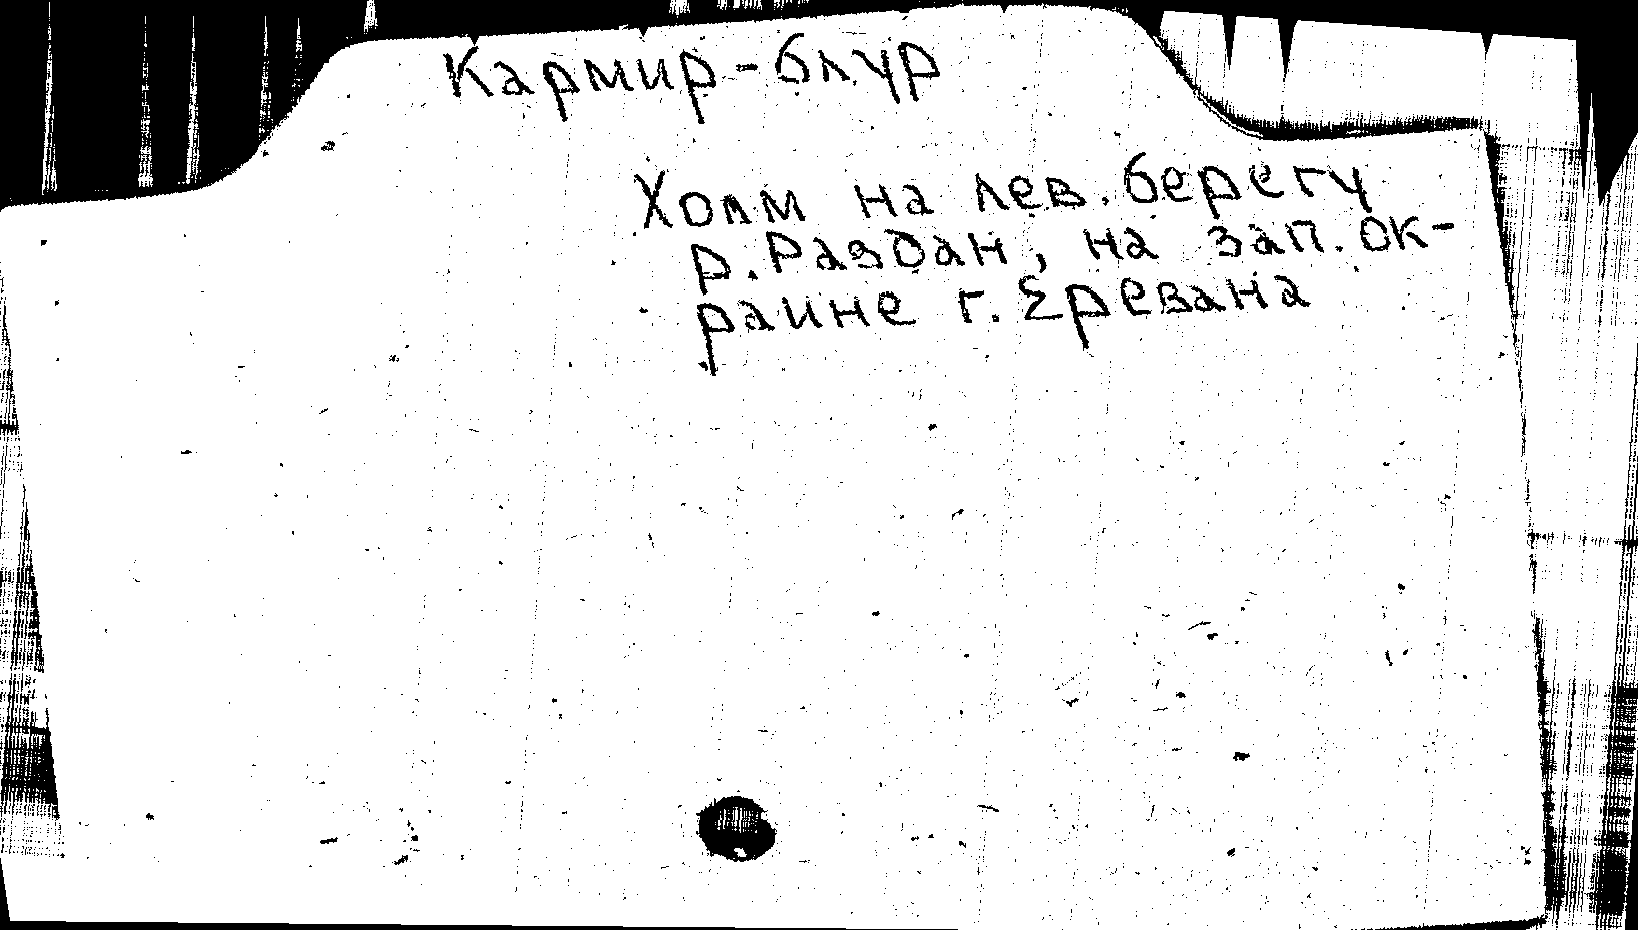 Кармир-блур
Холм на лев. берегу
р. Раздан, на зап. ок-
раине г. Еревана